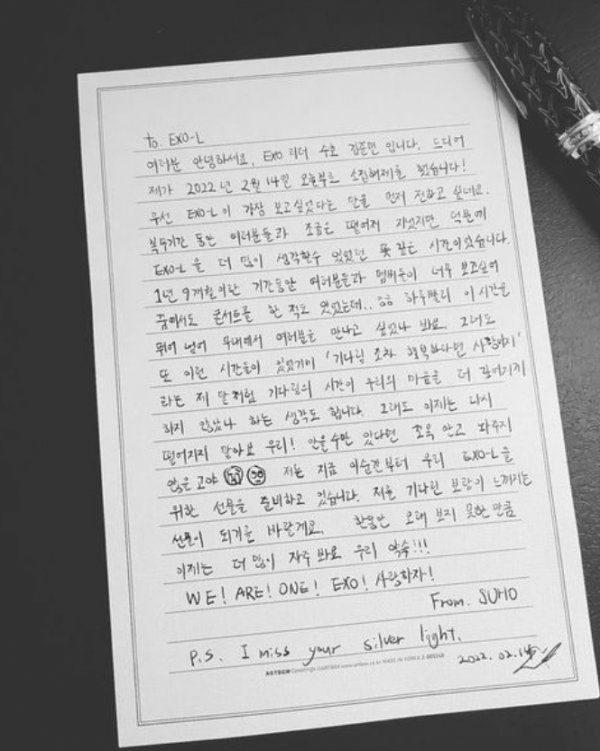 to. EXO-L
여러분 안녕하세요, EXO 리더 수호 김준면 입니다. 드디어
제가 2022년 2월 14일 오늘부로 소집해제를 했습니다!
우선 EXO-L이 가장 보고싶었다는 말을 먼저 전하고 싶네요.
복무기간 동안 여러분들과 조금은 떨어져 지냈지만 덕분에
EXO-L을 더 많이 생각할수 있었던 뜻 깊은 시간이었습니다.
1년 9개월이란 기간동안 여러분들과 멤버들이 너무 보고싶어
꿈에서도 콘서트를 한 적도 있었는데.. 하루빨리 이 시간을
뛰어 넘어 무대에서 여러분을 만나고 싶었나 봐요. 그래도
또 이런 시간들이 있었기에 '기다림 조차 행복하다면 사랑이지'
라는 제 말처럼 기다림의 시간이 우리의 마음을 더 깊어지게
하지 않았나 하는 생각도 합니다. 그래도 이제는 다시
떨어지지 말아요 우리! 안을수만 있다면 꼬옥 안고 놔주지
않을 거야 저는 지금 이순간부터 우리 EXO-L을
위한 선물을 준비하고 있습니다. 저를 기다린 보람이 느껴지는
선물이 되기를 바랄게요. 한동안 오래 보지 못한 만큼
이제는 더 많이 자주 봐요 우리 약속!!!
WE! ARE! ONE! EXO! 사랑하자!
From. SUHO
P.S. I miss your silver light.
2022. 02. 14
ARTBOX MADE IN KOREA